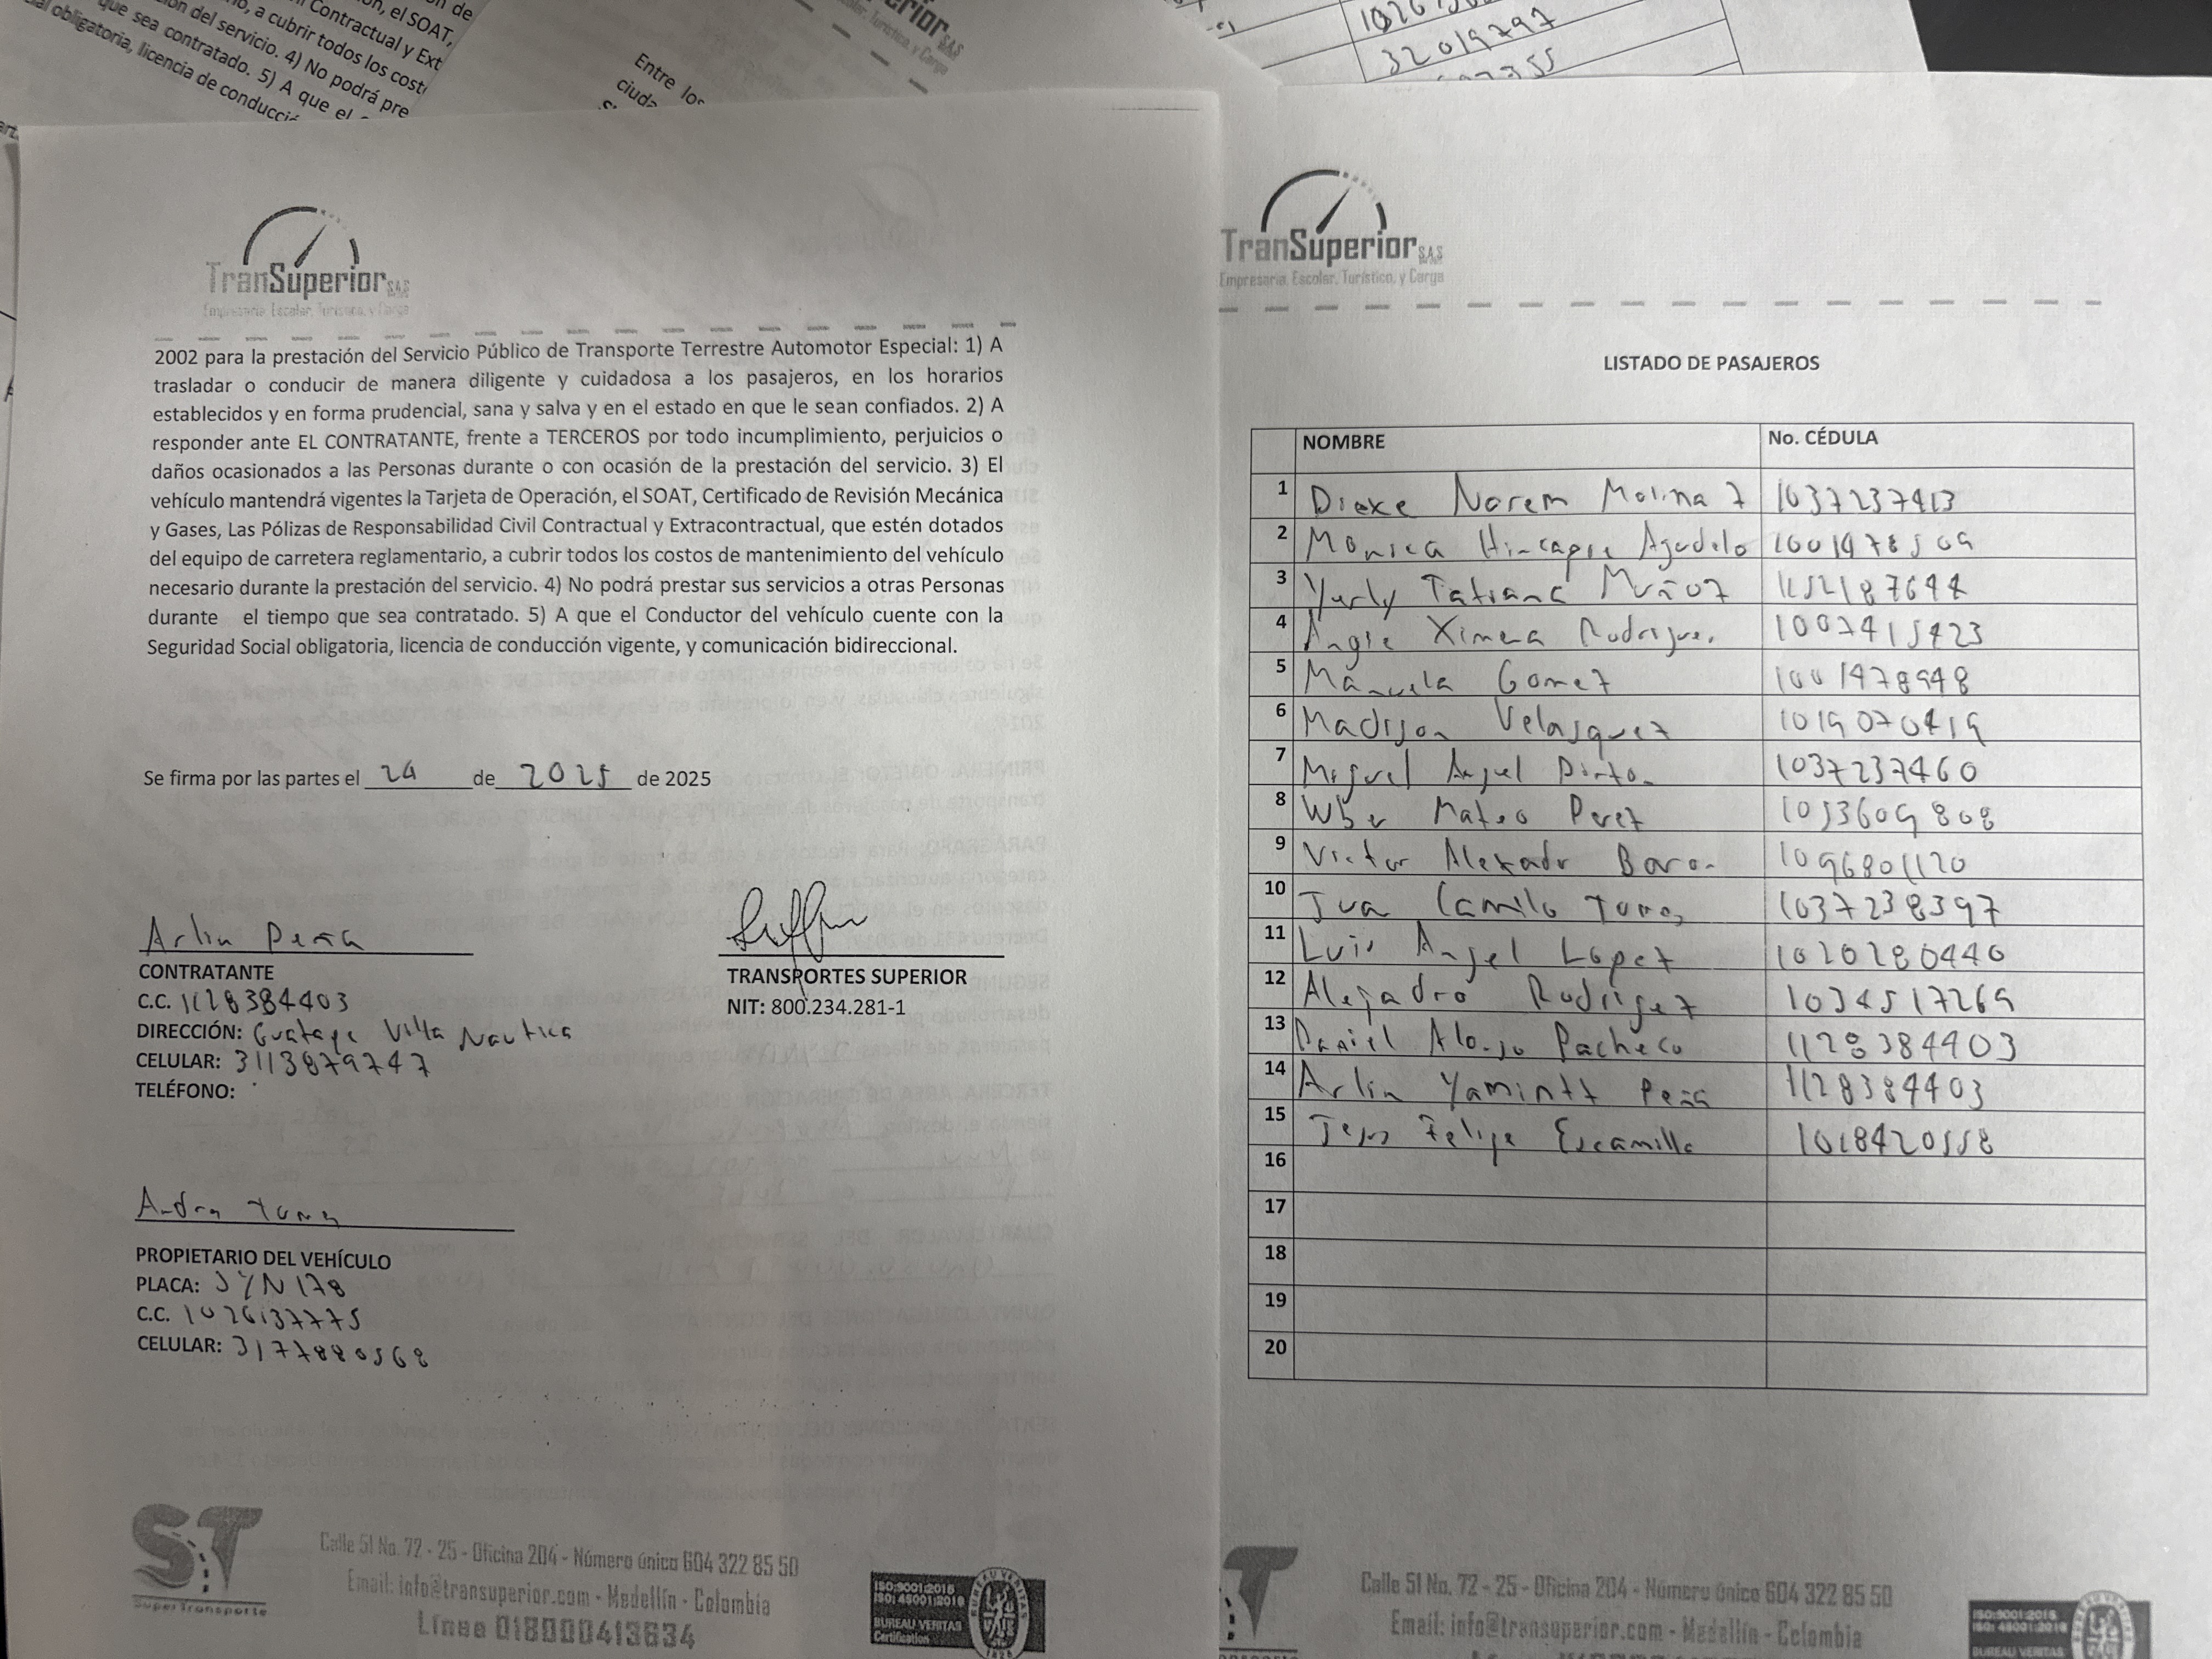 el SOAT,
a cubrir todos los cost
Contractual y Ext
que sea contratado. 5) A que el
del servicio. 4) No podrá pre
obligatoria, licencia de conducció
Entre los
32019797
TranSuperior SAS
Empresaria, Escolar, Turística, y Carga
2002 para la prestación del Servicio Público de Transporte Terrestre Automotor Especial: 1) A
trasladar o conducir de manera diligente y cuidadosa a los pasajeros, en los horarios
establecidos y en forma prudencial, sana y salva y en el estado en que le sean confiados. 2) A
responder ante EL CONTRATANTE, frente a TERCEROS por todo incumplimiento, perjuicios o
daños ocasionados a las Personas durante o con ocasión de la prestación del servicio. 3) El
vehículo mantendrá vigentes la Tarjeta de Operación, el SOAT, Certificado de Revisión Mecánica
y Gases, Las Pólizas de Responsabilidad Civil Contractual y Extracontractual, que estén dotados
del equipo de carretera reglamentario, a cubrir todos los costos de mantenimiento del vehículo
necesario durante la prestación del servicio. 4) No podrá prestar sus servicios a otras Personas
durante el tiempo que sea contratado. 5) A que el Conductor del vehículo cuente con la
Seguridad Social obligatoria, licencia de conducción vigente, y comunicación bidireccional.
Se firma por las partes el 24 de 2025 de 2025
Arlin Peña
CONTRATANTE
C.C. 1128384403
DIRECCIÓN: Guatape Villa Nautica
CELULAR: 3113879747
TELÉFONO:
TRANSPORTES SUPERIOR
NIT: 800.234.281-1
PROPIETARIO DEL VEHÍCULO
PLACA: JYN178
C.C. 1026137775
CELULAR: 3177880568
ST
SuperTransporte
Calle 51 No. 72 - 25 - Oficina 204 - Número único 604 322 85 50
Email: info@transuperior.com - Medellín - Colombia
Línea 018000413634
ISO:9001:2015
ISO: 45001:2018
BUREAU VERITAS
Certification
TranSuperior SAS
Empresaria, Escolar, Turística, y Carga
LISTADO DE PASAJEROS
NOMBRE No. CÉDULA
1 Norem Molina 1037237413
2 Monica Hincapie Agudelo 1001478509
3 Yurly Tatiana Muñoz 1152187644
4 Angie Ximena Rodrigue. 1007415423
5 Manuela Gomez 1001478948
6 Madison Velasquez 1019070419
7 Miguel Angel Pinto 1037237460
8 Wber Mateo Perez 1053609808
9 Victor Alexadr Baro 1096801120
10 Jua Camilo 1037238397
11 Luis Angel Lopez 1020280440
12 Alejadro Rodrigez 1034517269
13 Daniel Alonso Pacheco 1128384403
14 Arlin Yamintt Peña 1128384403
15 Felipe Escamilla 1018420558
16
17
18
19
20
Calle 51 No. 72 - 25 - Oficina 204 - Número único 604 322 85 50
Email: info@transuperior.com - Medellín - Colombia
ISO:9001:2015
ISO: 45001:2018
BUREAU VERITAS